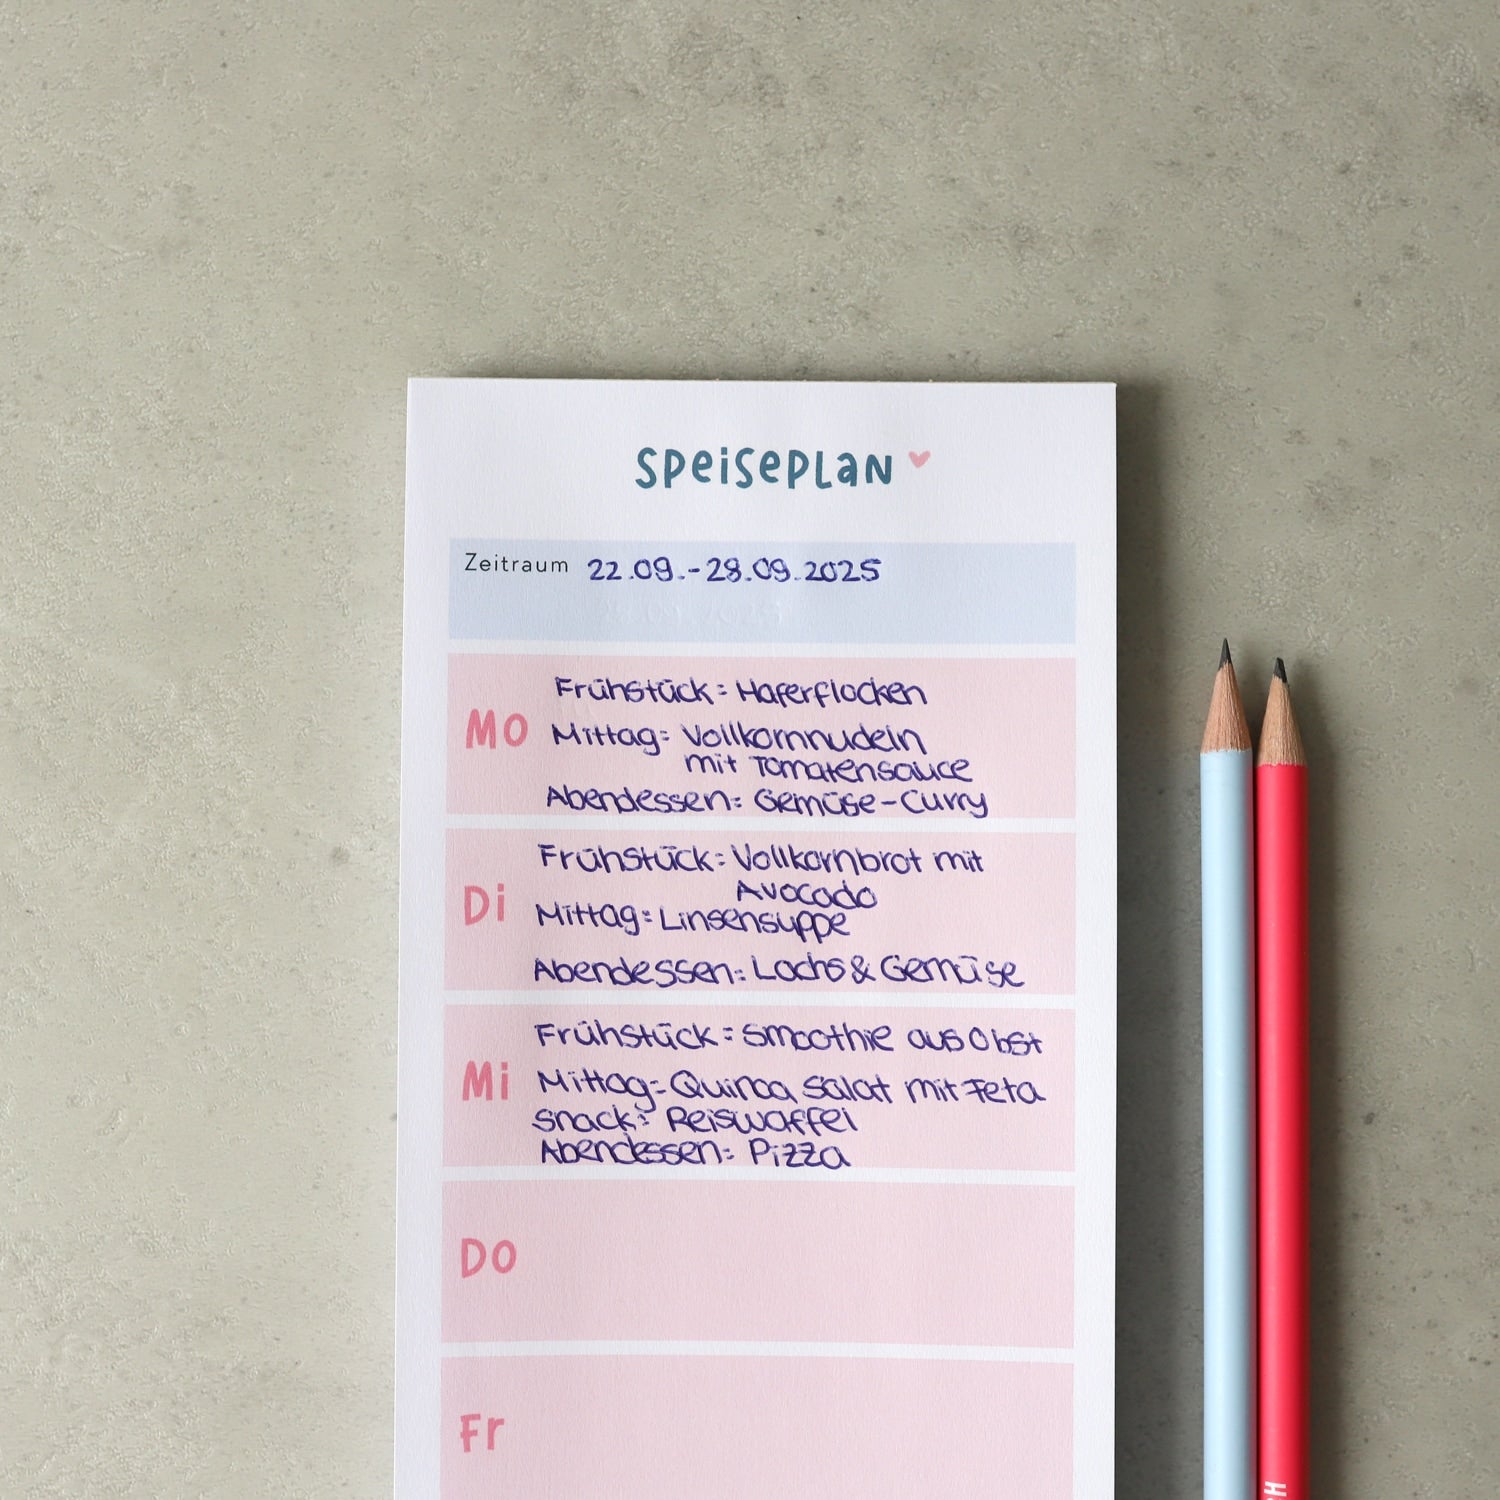 Speiseplan
Zeitraum 22.09.-28.09.2025
Mo
Frühstück: Haferflocken
Mittag: Vollkornnudeln
mit Tomatensauce
Abendessen: Gemüse-Curry
Di
Frühstück: Vollkornbrot mit
Avocado
Mittag: Linsensuppe
Abendessen: Lachs & Gemüse
Mi
Frühstück: Smoothie aus Obst
Mittag: Quinoa Salat mit Feta
Snack: Reiswaffel
Abendessen: Pizza
Do
Fr
H